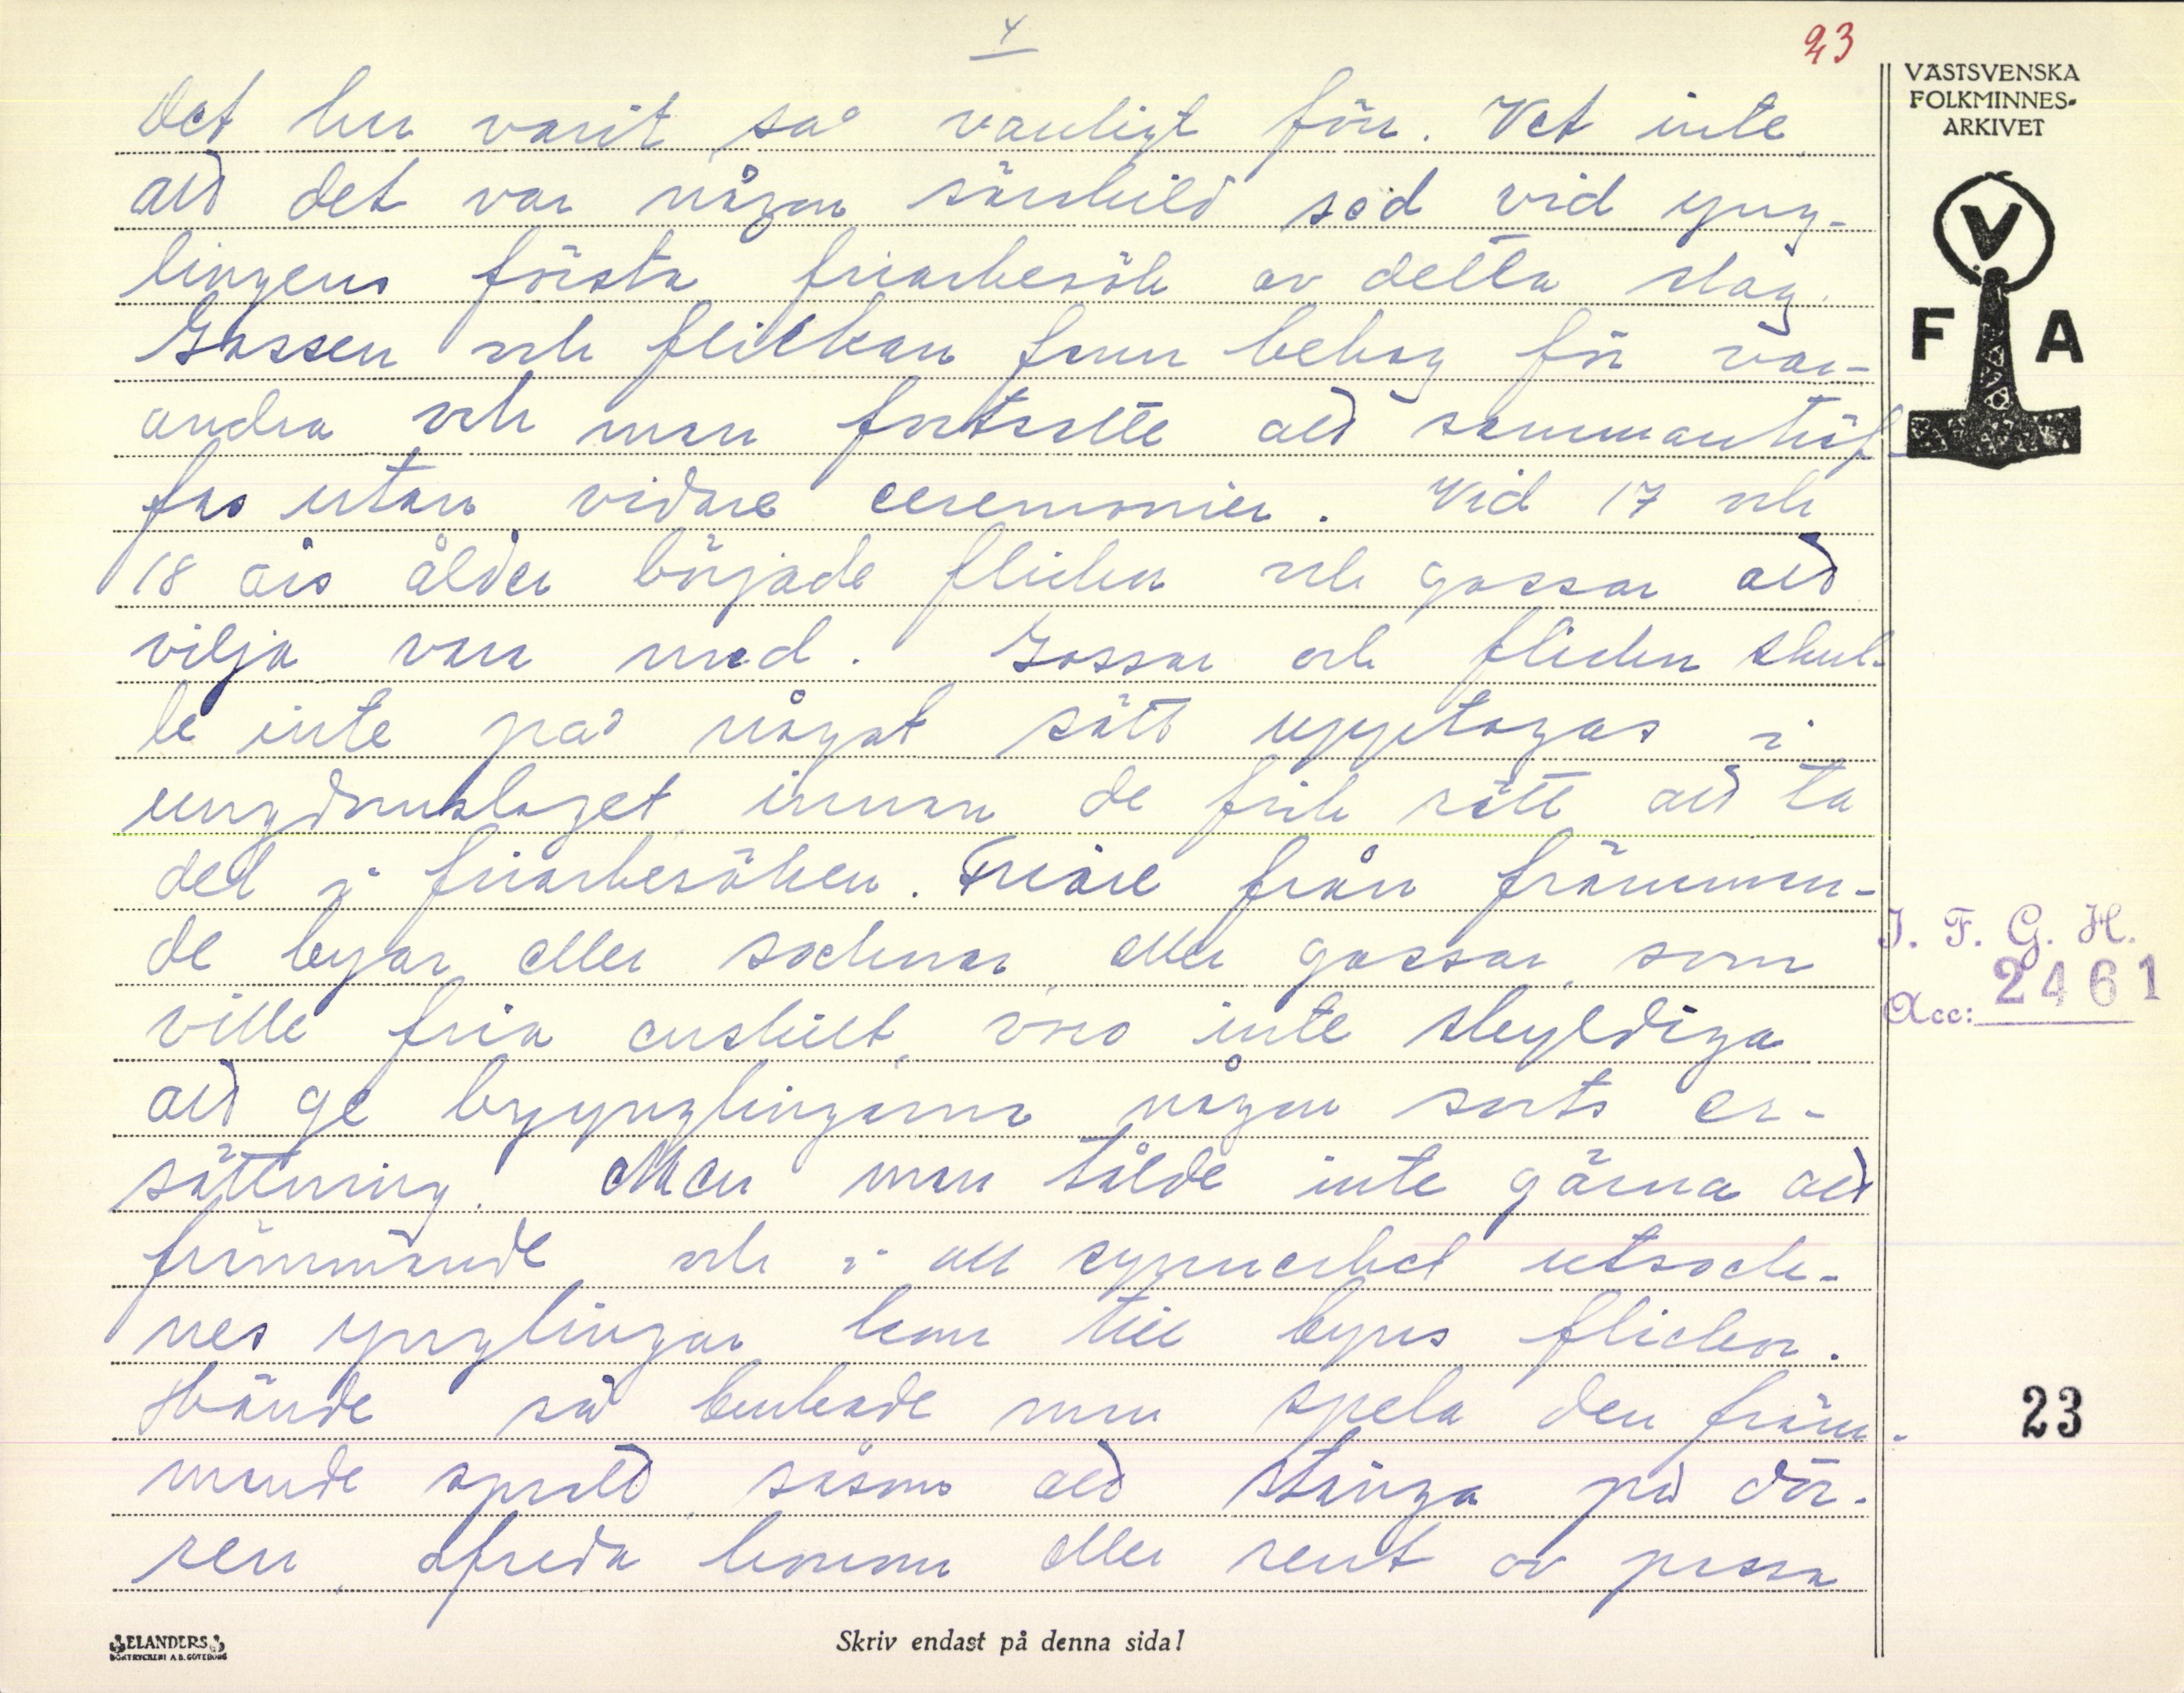 4
23
VÄSTSVENSKA
FOLKMINNES-
ARKIVET
V
F A
Det har varit så vanligt förr. Vet inte
att det var någon särskild sed vid yng-
lingens första friarbesök av detta slag.
Gossen och flickan fann behag för var-
andra och man fortsatte att sammanträf-
fas utan vidare ceremonier. Vid 17 och
18 års ålder började flickor och gossar att
vilja vara med. Gossar och flickor skul-
le inte på något sätt upptagas i
ungdomslaget innan de fick rätt att ta
del i friarbesöken. Friare från främman-
de byar eller socknar, eller gossar, som
ville fria enskilt, voro inte skyldiga
att ge byynglingarna någon sorts er-
sättning. Men man tålde inte gärna att
främmande och i all synnerhet utsock-
nes ynglingar kom till byns flickor.
Hände så brukade man spela den främ-
mande spratt, såsom att stänga på dör-
ren, afreda honom eller rent av passa
I. F. G. H.
Acc: 2461
23
ELANDERS
BOKTRYCKERI A.B. GÖTEBORG
Skriv endast på denna sida!